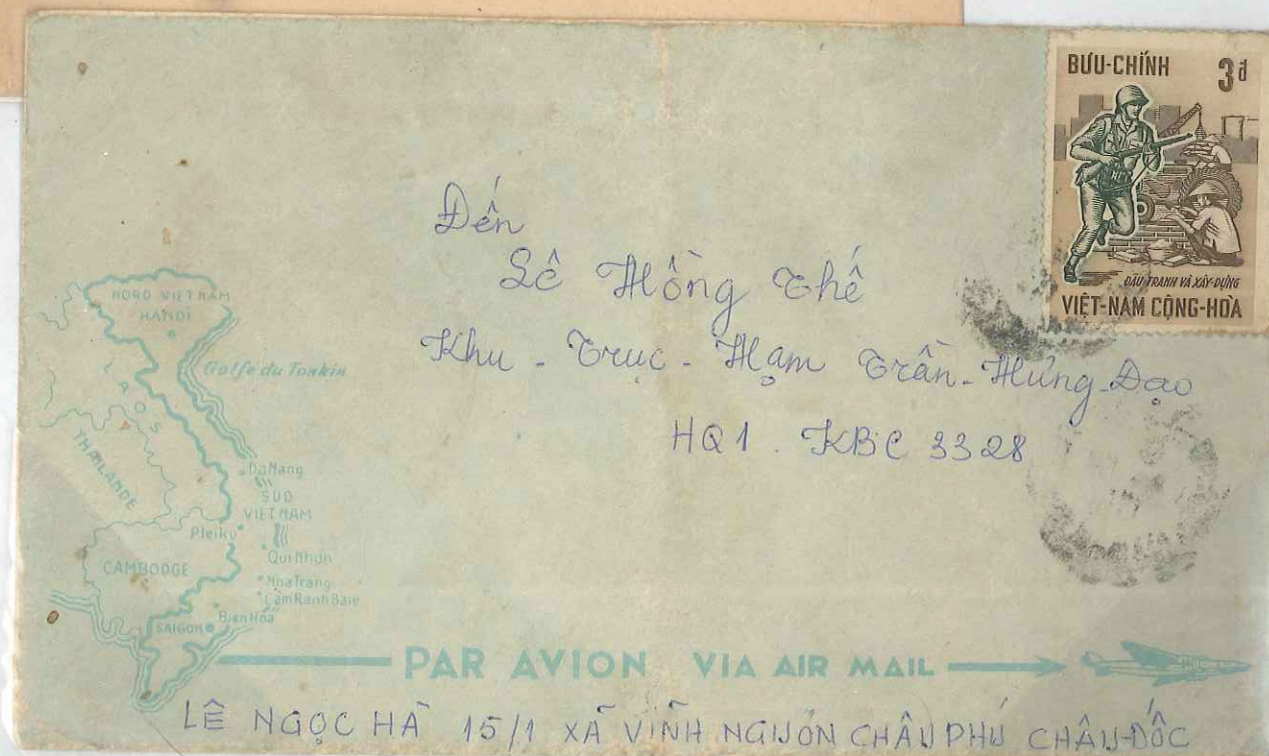 BƯU-CHÍNH 3đ
ĐẤU TRANH VÀ XÂY-DỰNG
VIỆT-NAM CỘNG-HÒA
Đến
Lê Hồng Thế
Khu - Trục - Hạm Trần-Hưng-Đạo
HQ1. KBC 3328
NORD VIETNAM
HANOI
Golfe du Tonkin
LAOS
THAILANDE
DaNang
SUD
VIETNAM
Pleiku
QuiNhon
CAMBODGE
NhaTrang
CamRanhBaie
BienHoa
SAIGON
PAR AVION VIA AIR MAIL
LÊ NGỌC HÀ 15/1 XÃ VĨNH NGUƠN CHÂU PHÚ CHÂU-ĐỐC